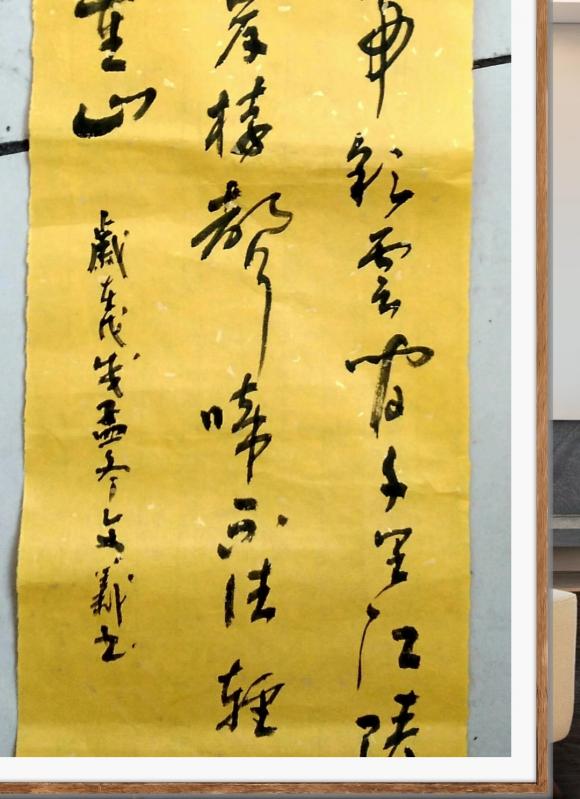 帝彩雲間千里江陵
岸猿聲啼不住輕
重山
歲在戊戌孟冬文書